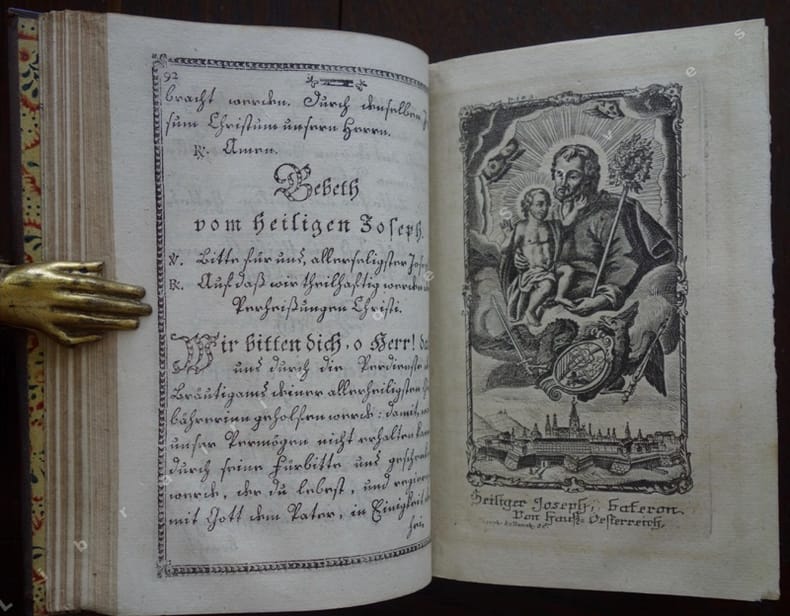 92
bracht werden. Durch denselben
sum Christum unsern Herrn.
℟. Amen.
Gebeth
vom heiligen Joseph.
℣. Bitte für uns, allerseligster
℟. Auf daß wir theilhaftig werden
Verheißungen Christi.
Wir bitten dich, o Herr!
uns durch die Verdienste
Bräutigams deiner allerheiligsten
bährerinn geholfen werde: damit,
unser Vermögen nicht erhalten
durch seine Fürbitte uns
werde, der du lebest, und
mit Gott dem Vater, in Einigkeit
Heiliger Joseph,
Von Hauß Oesterreich.